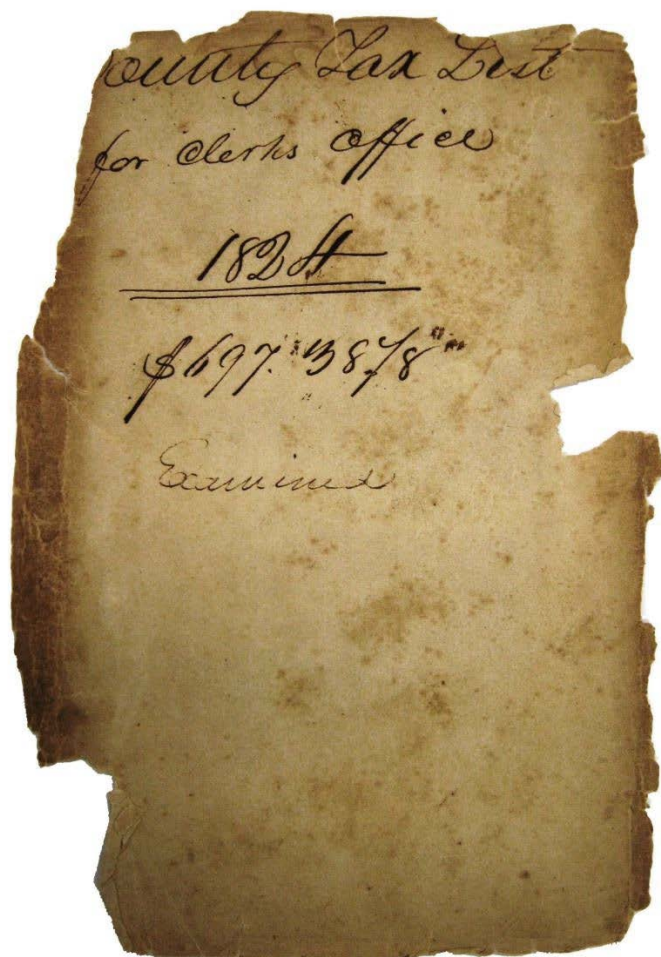 ounty Tax List
for Clerks office
1824
$697.3878
Examined